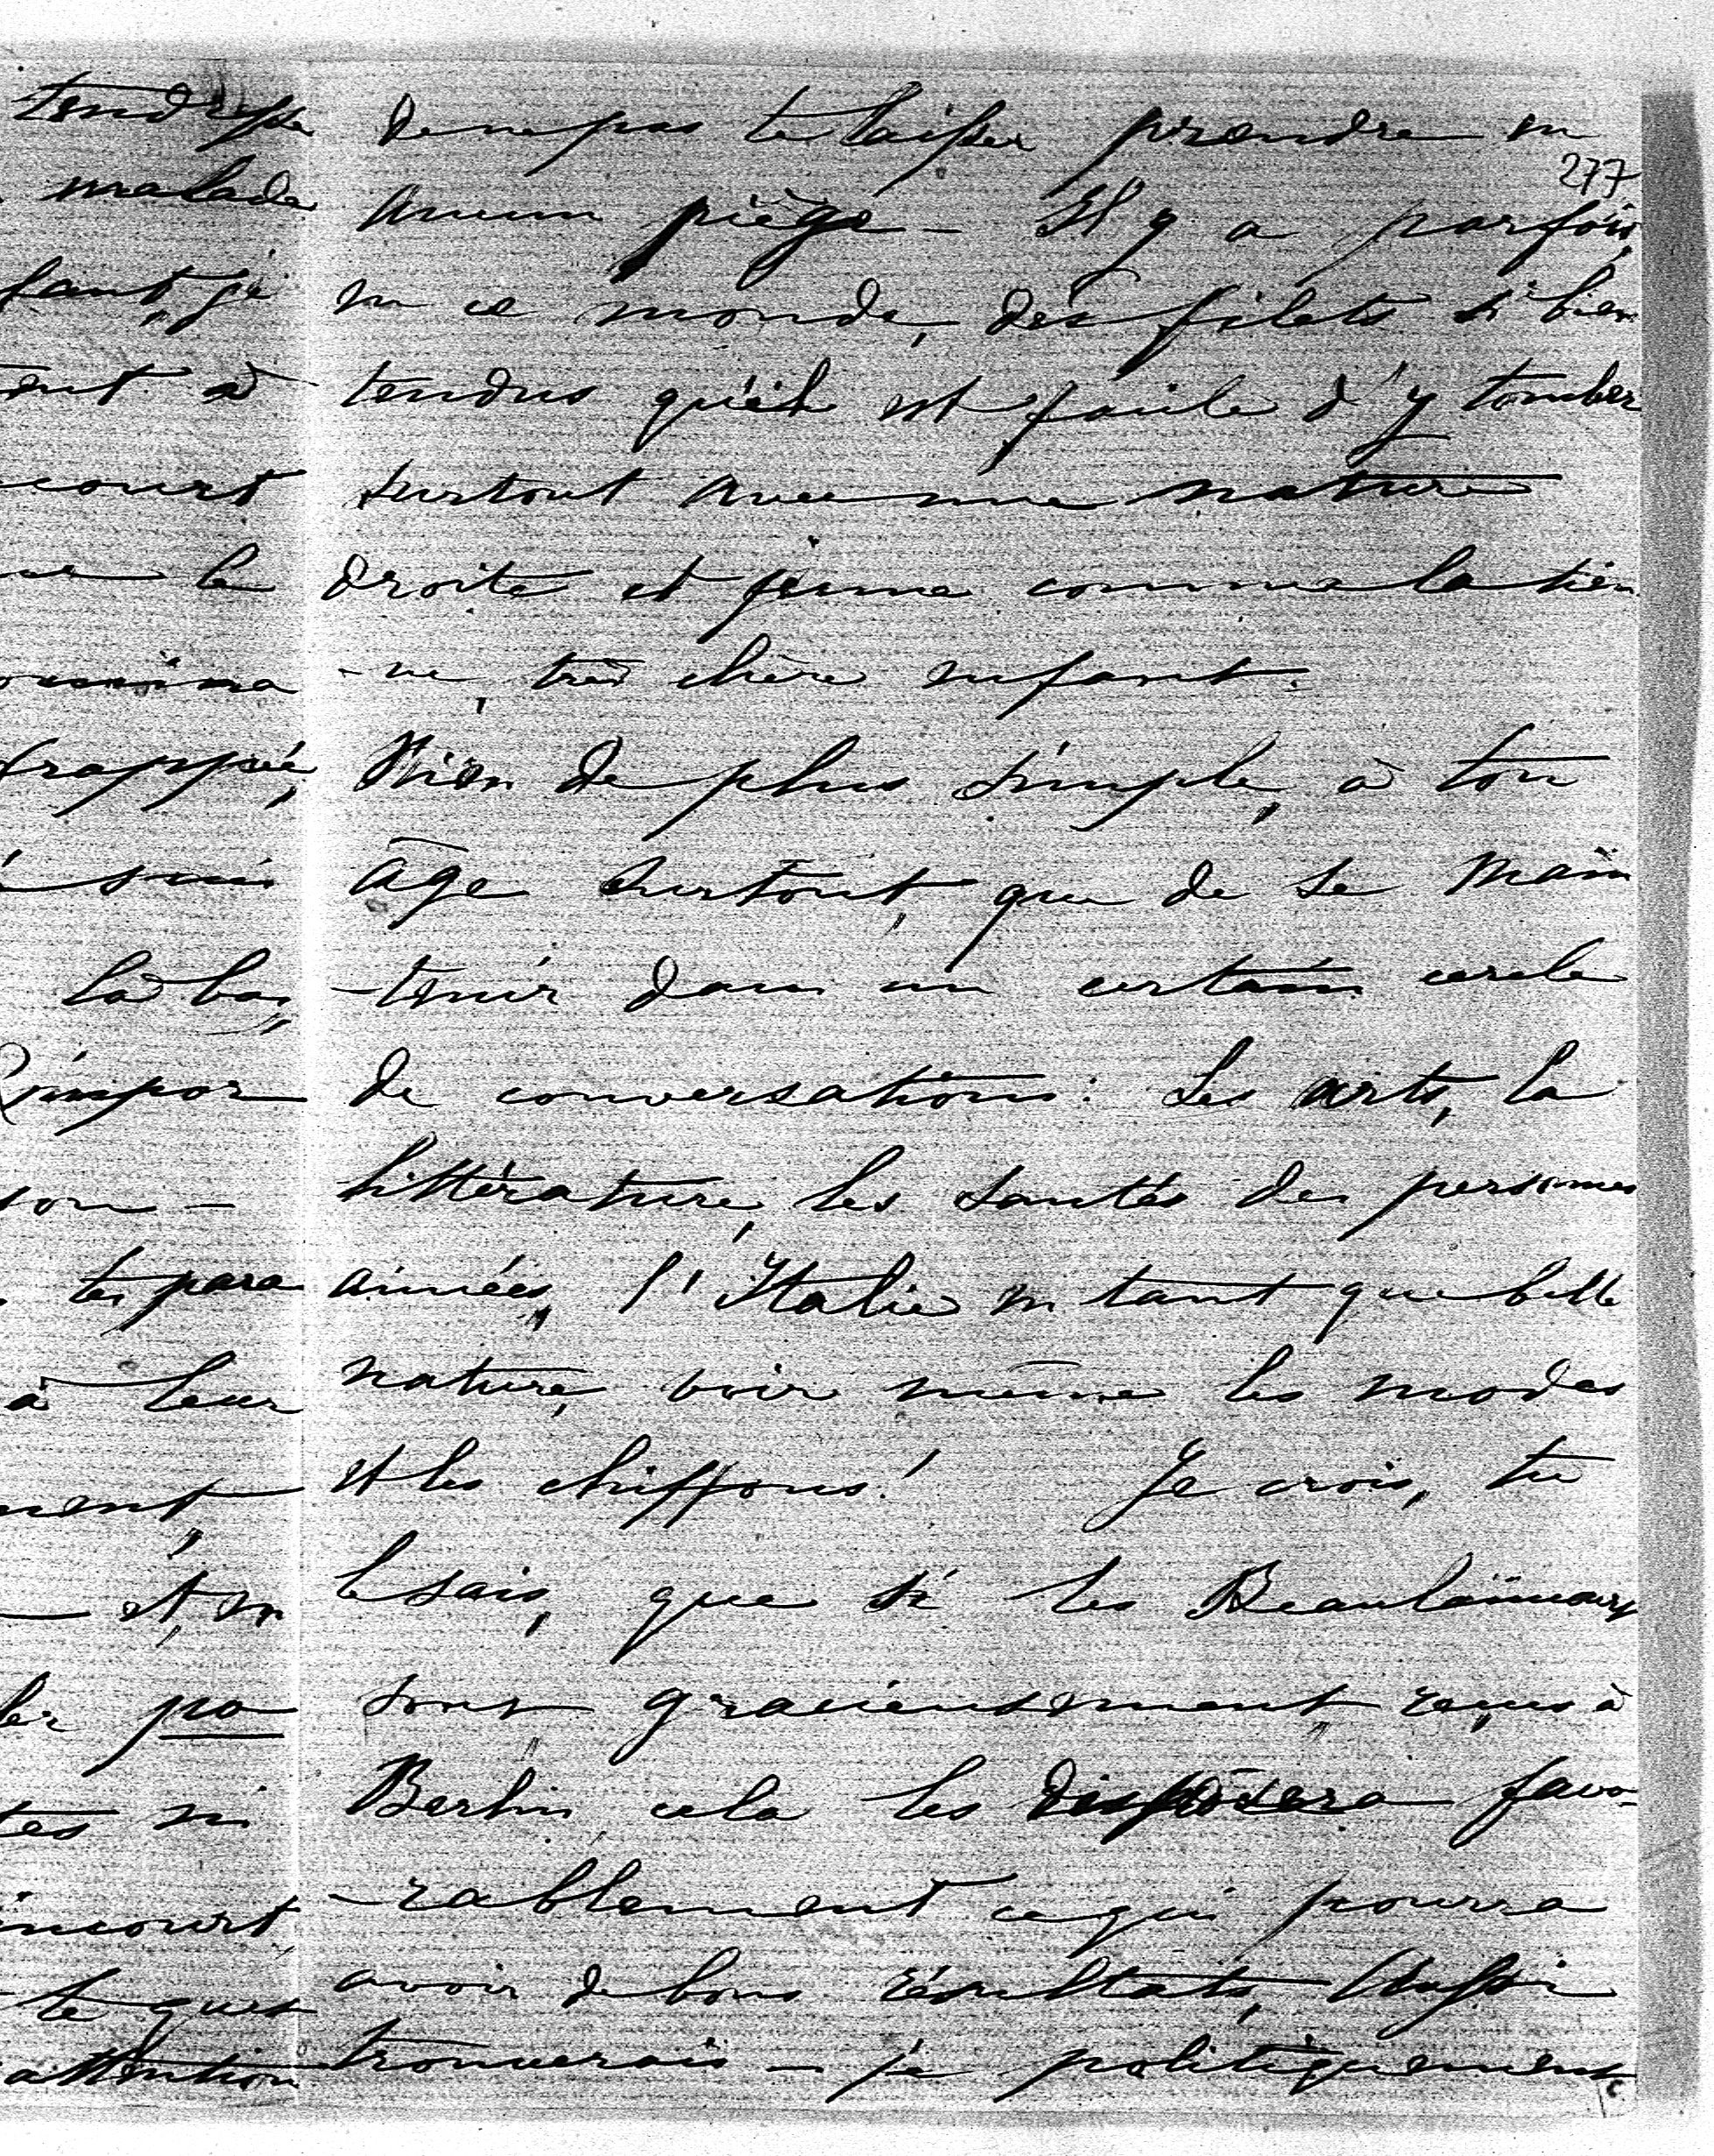 tendresse
malade
fant, je
ent à
court
le
frappée,
suis
là bas,
impor
son -
tes para
à leur
ment,
et, en
ler pa
tes ni
incourt
te ques
attention
277
de ne pas te laisser prendre en
aucun piège - Il y a parfois,
en ce monde, des filets si bien
tendus qu'il est facile d'y tomber
surtout avec une nature
droite et jeune comme la tien
-ne, très chère enfant.
Rien de plus simple, à ton
âge surtout, que de se main
-tenir dans un certain cercle
de conversations: Les arts, la
littérature, les santés des personnes
aimées, l'Italie en tant que belle
nature, voir même les modes
et les chiffons! Je crois, tu
le sais, que si les Beaulaincourt
sont gracieusement reçus à
Berlin, cela les disposera favo-
-rablement ce qui pourra
avoir de bons résultats, Aussi
trouverais-je politiquement